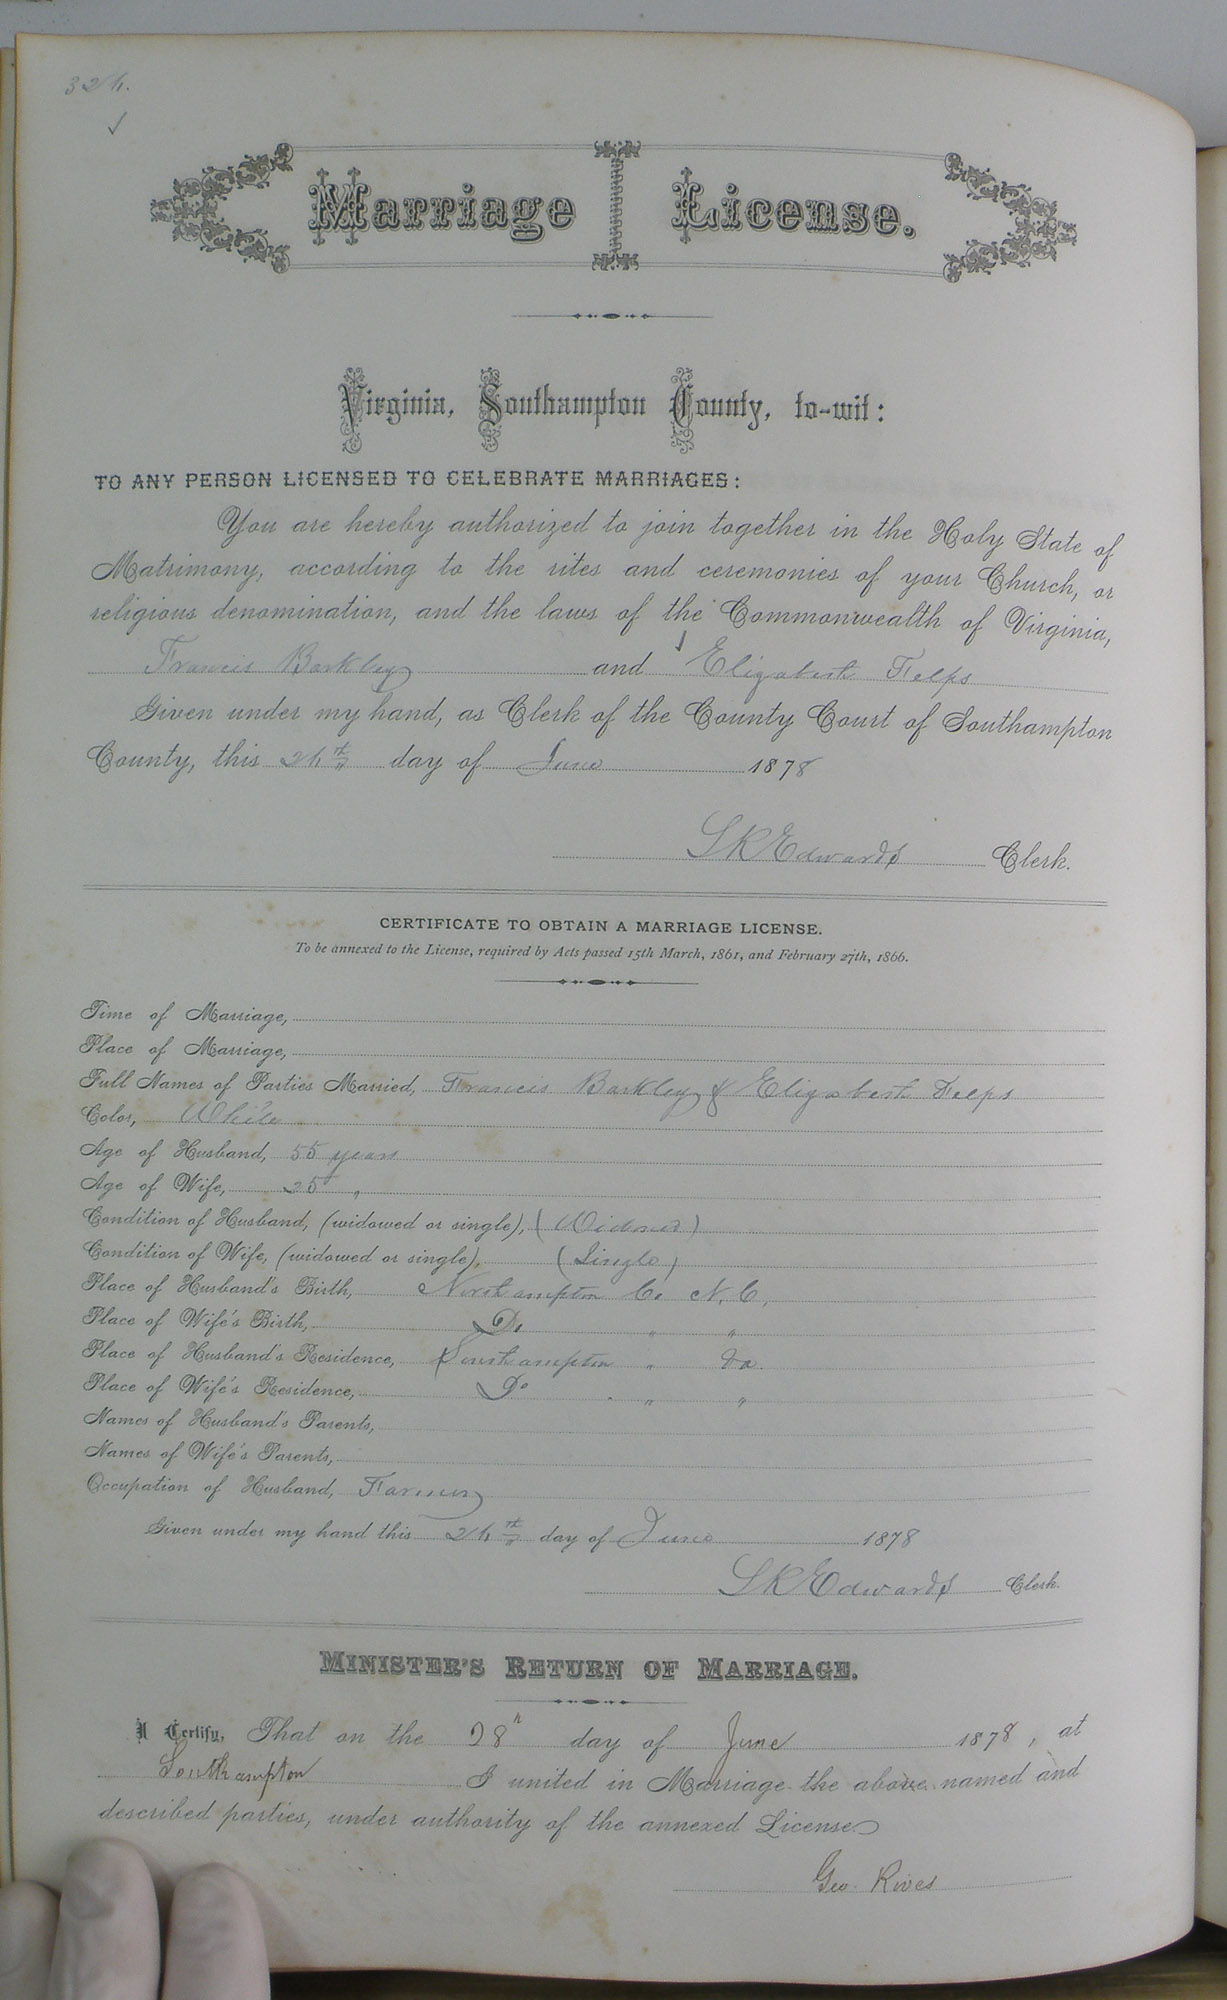 324.
Marriage License.
Virginia, Southampton County, to-wit:
TO ANY PERSON LICENSED TO CELEBRATE MARRIAGES:
You are hereby authorized to join together in the Holy State of
Matrimony, according to the rites and ceremonies of your Church, or
religious denomination, and the laws of the Commonwealth of Virginia,
Francis Barkley and Elizabeth Felps
Given under my hand, as Clerk of the County Court of Southampton
County, this 24th day of June 1878
LR Edwards Clerk.
CERTIFICATE TO OBTAIN A MARRIAGE LICENSE.
To be annexed to the License, required by Acts passed 15th March, 1861, and February 27th, 1866.
Time of Marriage,
Place of Marriage,
Full Names of Parties Married, Francis Barkley & Elizabeth Felps
Color, White
Age of Husband, 55 years
Age of Wife, 25 "
Condition of Husband, (widowed or single), (Widowed)
Condition of Wife, (widowed or single), (Single)
Place of Husband's Birth, Northampton Co N.C.
Place of Wife's Birth, Do " "
Place of Husband's Residence, Southampton " Va.
Place of Wife's Residence, Do " "
Names of Husband's Parents,
Names of Wife's Parents,
Occupation of Husband, Farmer
Given under my hand this 24th day of June 1878
LR Edwards Clerk.
MINISTER'S RETURN OF MARRIAGE.
I Certify, That on the 28th day of June 1878, at
Southampton I united in Marriage the above named and
described parties, under authority of the annexed License
Geo. Rives